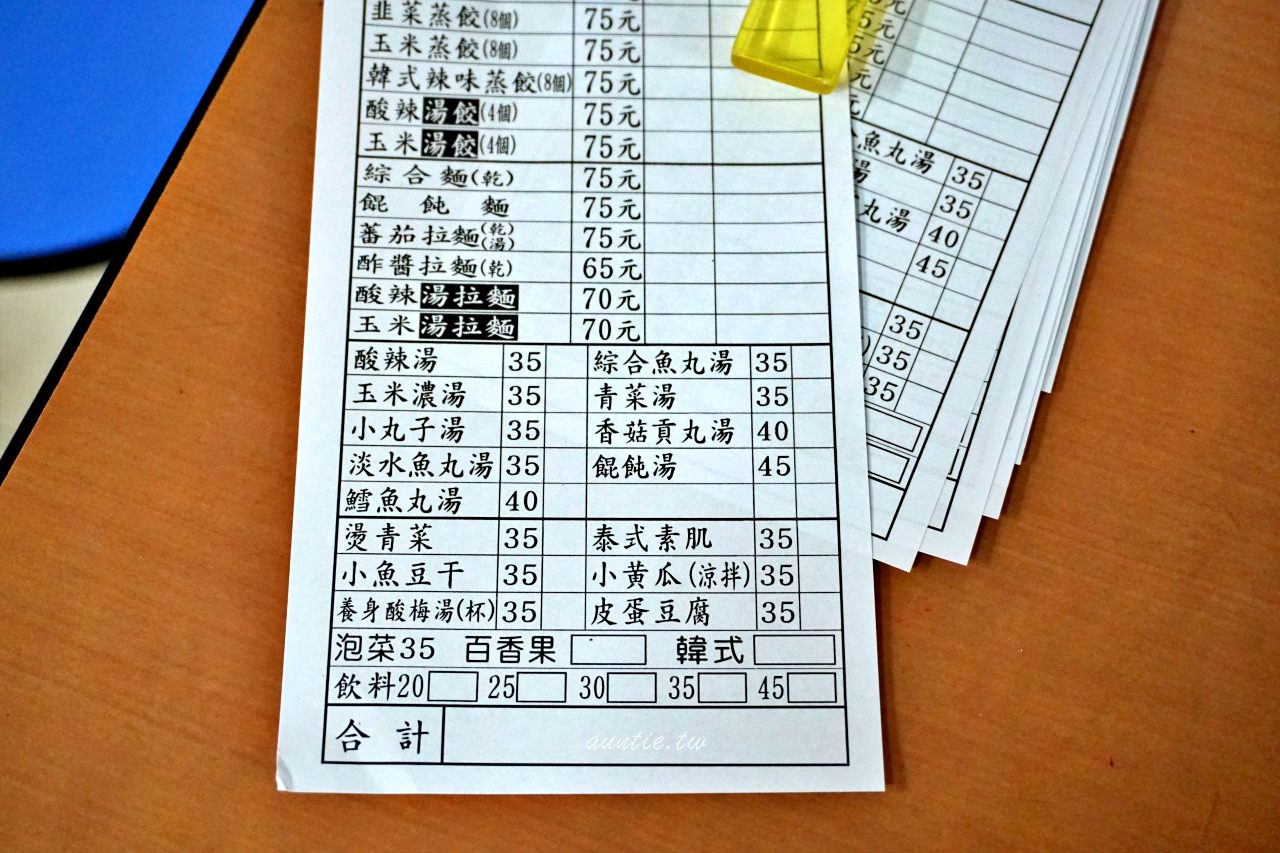 韭菜蒸餃(8個) 75元
玉米蒸餃(8個) 75元
韓式辣味蒸餃(8個) 75元
酸辣湯餃(4個) 75元
玉米湯餃(4個) 75元
綜合麵(乾) 75元
餛飩麵 75元
蕃茄拉麵(乾)(湯) 75元
酢醬拉麵(乾) 65元
酸辣湯拉麵 70元
玉米湯拉麵 70元
酸辣湯 35 綜合魚丸湯 35
玉米濃湯 35 青菜湯 35
小丸子湯 35 香菇貢丸湯 40
淡水魚丸湯 35 餛飩湯 45
鱈魚丸湯 40
燙青菜 35 泰式素肌 35
小魚豆干 35 小黃瓜(涼拌) 35
養身酸梅湯(杯) 35 皮蛋豆腐 35
泡菜35 百香果 韓式
飲料20 25 30 35 45
合計
auntie.tw
魚丸湯 35
湯 35
丸湯 40
45
35
35
35